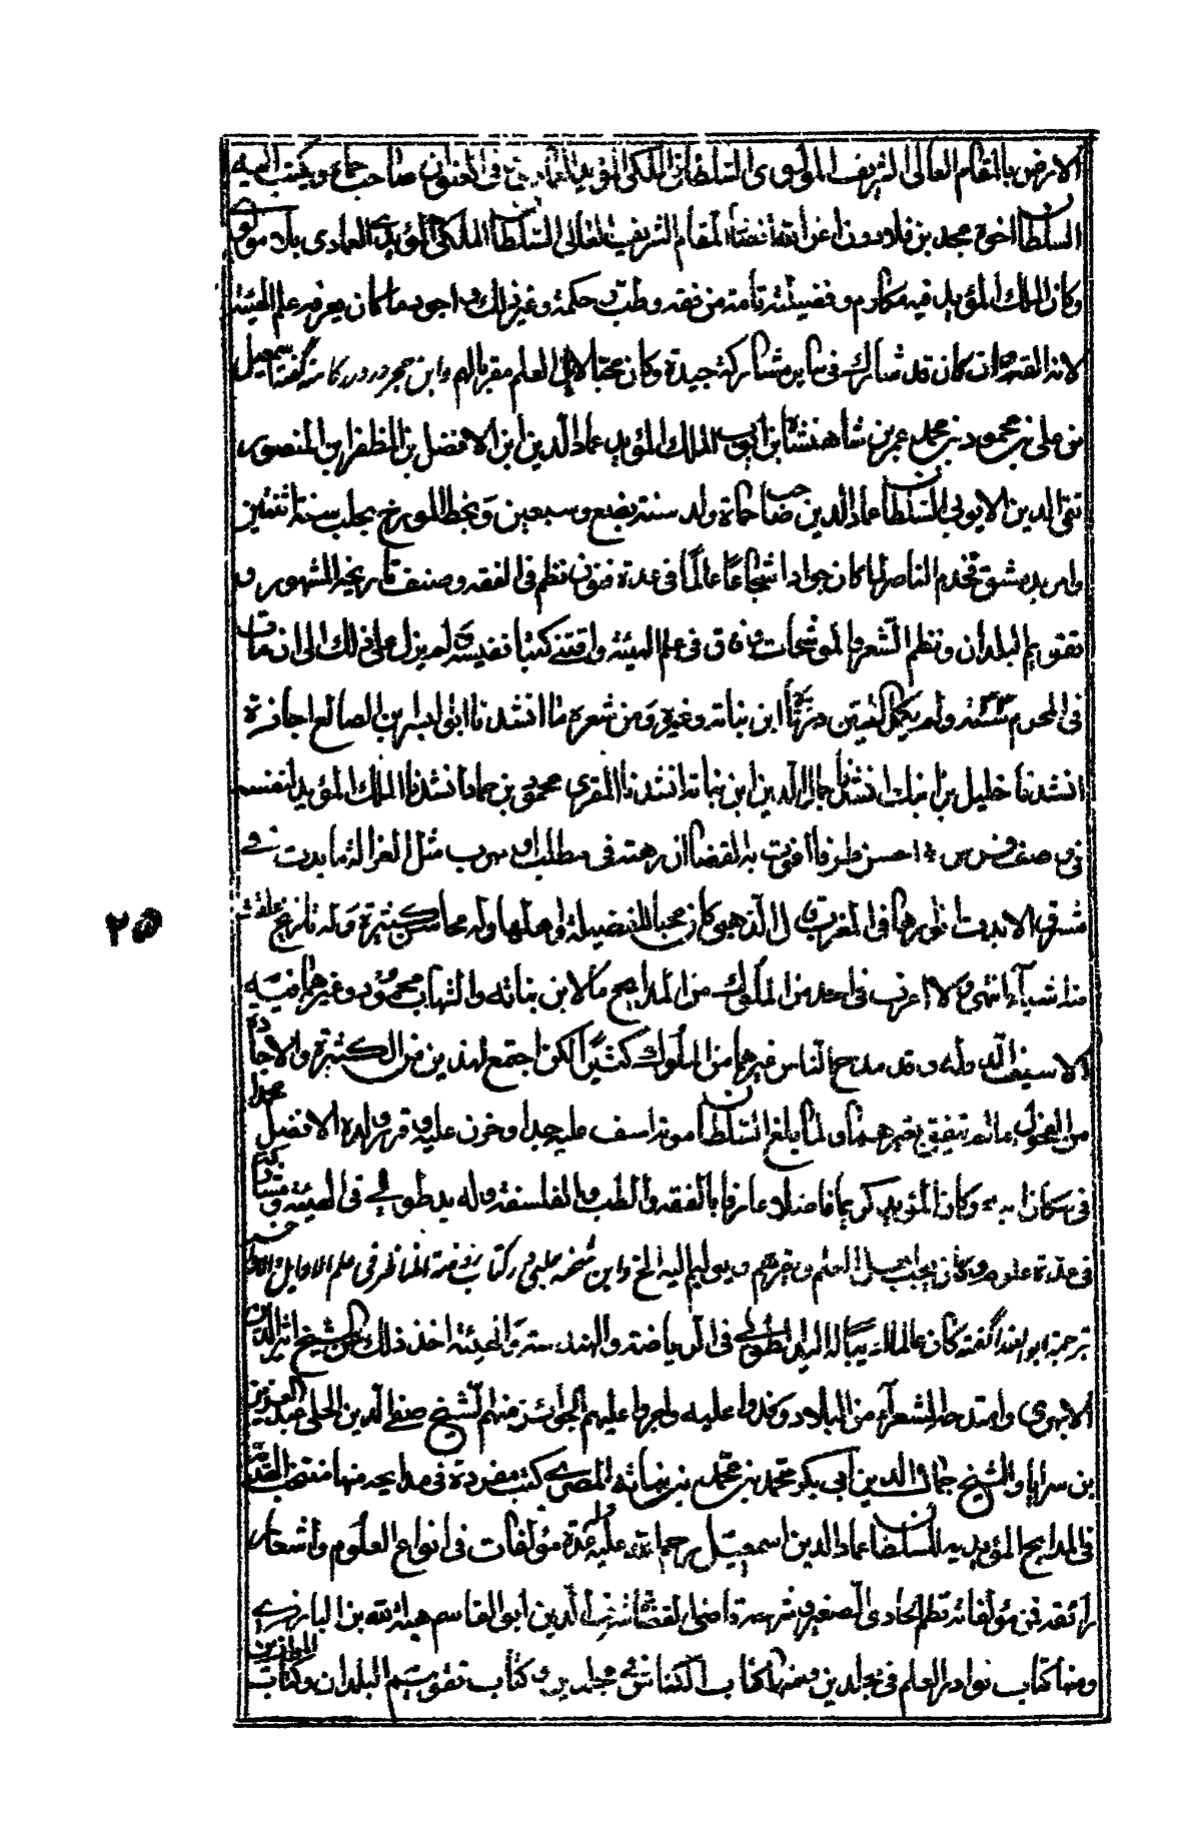 الارض بالمقام العالی الشریف المولوی السلطانی الملکی المؤیدی العمادی و فی العنوان صاحب حماة و یکتب الیه
السلطان اخوه محمد بن قلاوون اعز الله انصار المقام الشریف العالی السلطانی الملکی المؤیدی العمادی بلا مولوی
وکان الملک المؤید فیه مکارم و فضیلة تامة من فقه و طب و حکمة و غیر ذلک و اجود ما کان یعرفه علم الهیئة
لانه اتقنه و ان کان قد شارک فی سایر مشارکة جیدة و کان محبا لاهل العلم مقربا لهم و ابن حجر در درر کامنه گفته اسمعیل
بن علی بن محمود بن محمد بن عمر بن شاهنشاه بن ایوب الملک المؤید عماد الدین ابن الافضل بن المظفر بن المنصور
تقی الدین الایوبی السلطان عماد الدین صاحب حماة ولد سنة بضع و سبعین و بخط المورخ بحلب سنة اثنتین
وامر بدمشق فخدم الناصر لما کان جوادا شجاعا عالما فی عدة فنون نظم فی الفقه و صنف تاریخه المشهور و
تقویم البلدان و نظم الشعر و الموشحات و فاق فی علم الهیئة و اقتنی کتبا نفیسة و لم یزل علی ذلک الی ان مات
فی المحرم سنة و لم یکمل الستین و رثاه ابن نباته و غیره و من شعره ما انشدنا ابو الیسر بن الصائغ اجازة
انشدنا خلیل بن ایبک انشدنا جمال الدین ابن نباتة انشدنا المقری محمود بن حماد انشدنا الملک المؤید لنفسه
احسن طرفا به القضا ان رمته فی مطلب او مهرب مثل الغزالة ما بدت فی
مشرق الا بدت انوارها فی المغرب قال الذهبی کان محبا للفضیلة و اهلها و له محاسن کثیرة و له تاریخ علقت
منه اشیاء انتهی و لا اعرف فی احد من الملوک من المدایح ما لابن نباته و الشهاب محمود و غیرهما فیه
الا سیف الدولة و قد مدح الناس غیرهما من الملوک کثیرا لکن اجتمع لهذین من الکثرة و الاجادة
من الفحول ما لم یتفق لغیرهما و لما بلغ السلطان موته اسف علیه جدا و حزن علیه و قرر ولده الافضل محمدا
فی مکان ابیه و کان المؤید کریما فاضلا عارفا بالفقه و الطب و الفلسفة و له ید طولی فی الهیئة و مشارکة
فی عدة علوم و کان یحب اهل العلم و یقربهم و یولیهم الیه الخ و ابن شحنه حلبی در کتاب روضة المناظر فی علم الاوایل و الاواخر
ترجمة ابو الفدا گفته کان عالما له الید الطولی فی الریاضة و الهندسة و الهیئة اخذ ذلک عن الشیخ اثیر الدین
الابهری و امتدحه الشعراء من البلاد و وفدوا علیه و اجروا علیهم الجوائز منهم الشیخ صفی الدین الحلی عبد العزیز
بن سرایا و الشیخ جمال الدین ابی بکر محمد بن محمد بن نباته المصری کتب مفردة فی مدایحه منها منتخب الهدیة
فی المدایح المؤیدیه للسلطان عماد الدین اسمعیل رحمة الله علیه و له عدة مؤلفات فی انواع العلوم و اشعار
رائقة فمن مؤلفاته نظم الحاوی الصغیر و شرحه قاضی القضاة شرف الدین ابو القاسم هبة الله بن البارزی
و منها کتاب نوادر العلم فی مجلدین و منها کتاب الکناش فی مجلدین و کتاب تقویم البلدان و کتاب الموازین
۲۵